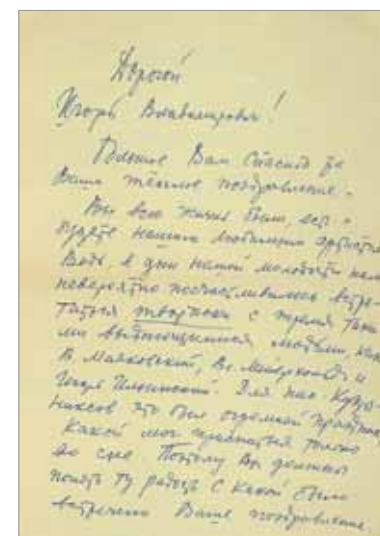 Дорогой
Игорь Владимирович!
Большое Вам Спасибо за
Ваше тёплое поздравление.
Вы всю жизнь были, есть и
будете нашим любимым артистом
Ведь, в дни нашей молодости нам
невероятно посчастливилось встре-
титься творчески с тремя таки-
ми выдающимися людьми, как
В. Маяковский, Вс. Мейерхольд и
Игорь Ильинский. Для нас Кукры-
никсов это был огромный праздник
какой мог присниться только
во сне. Поэтому Вы должны
понять ту радость с какой было
встречено Ваше поздравление.